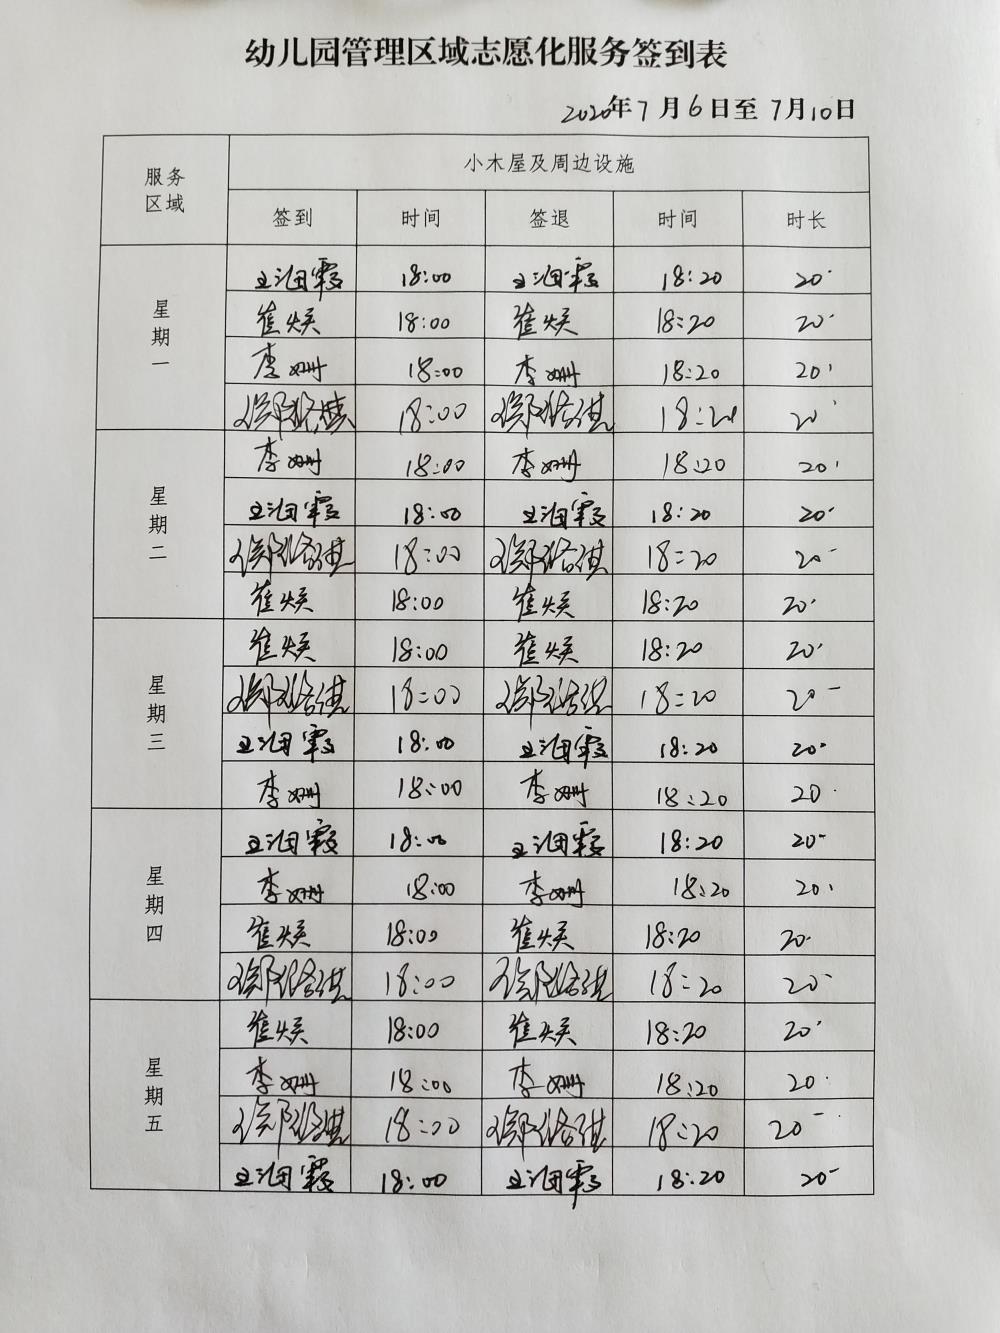 幼儿园管理区域志愿化服务签到表
2020年7月6日至7月10日
服务区域 小木屋及周边设施
签到 时间 签退 时间 时长
星期一
18:00 18:20 20'
崔焕 18:00 崔焕 18:20 20'
李姗 18:00 李姗 18:20 20'
18:00 18:20 20'
星期二
李姗 18:00 李姗 18:20 20'
18:00 18:20 20'
18:00 18:20 20'
崔焕 18:00 崔焕 18:20 20'
星期三
崔焕 18:00 崔焕 18:20 20'
18:00 18:20 20'
18:00 18:20 20'
李姗 18:00 李姗 18:20 20'
星期四
18:00 18:20 20'
李姗 18:00 李姗 18:20 20'
崔焕 18:00 崔焕 18:20 20'
18:00 18:20 20'
星期五
崔焕 18:00 崔焕 18:20 20'
李姗 18:00 李姗 18:20 20'
18:00 18:20 20'
18:00 18:20 20'